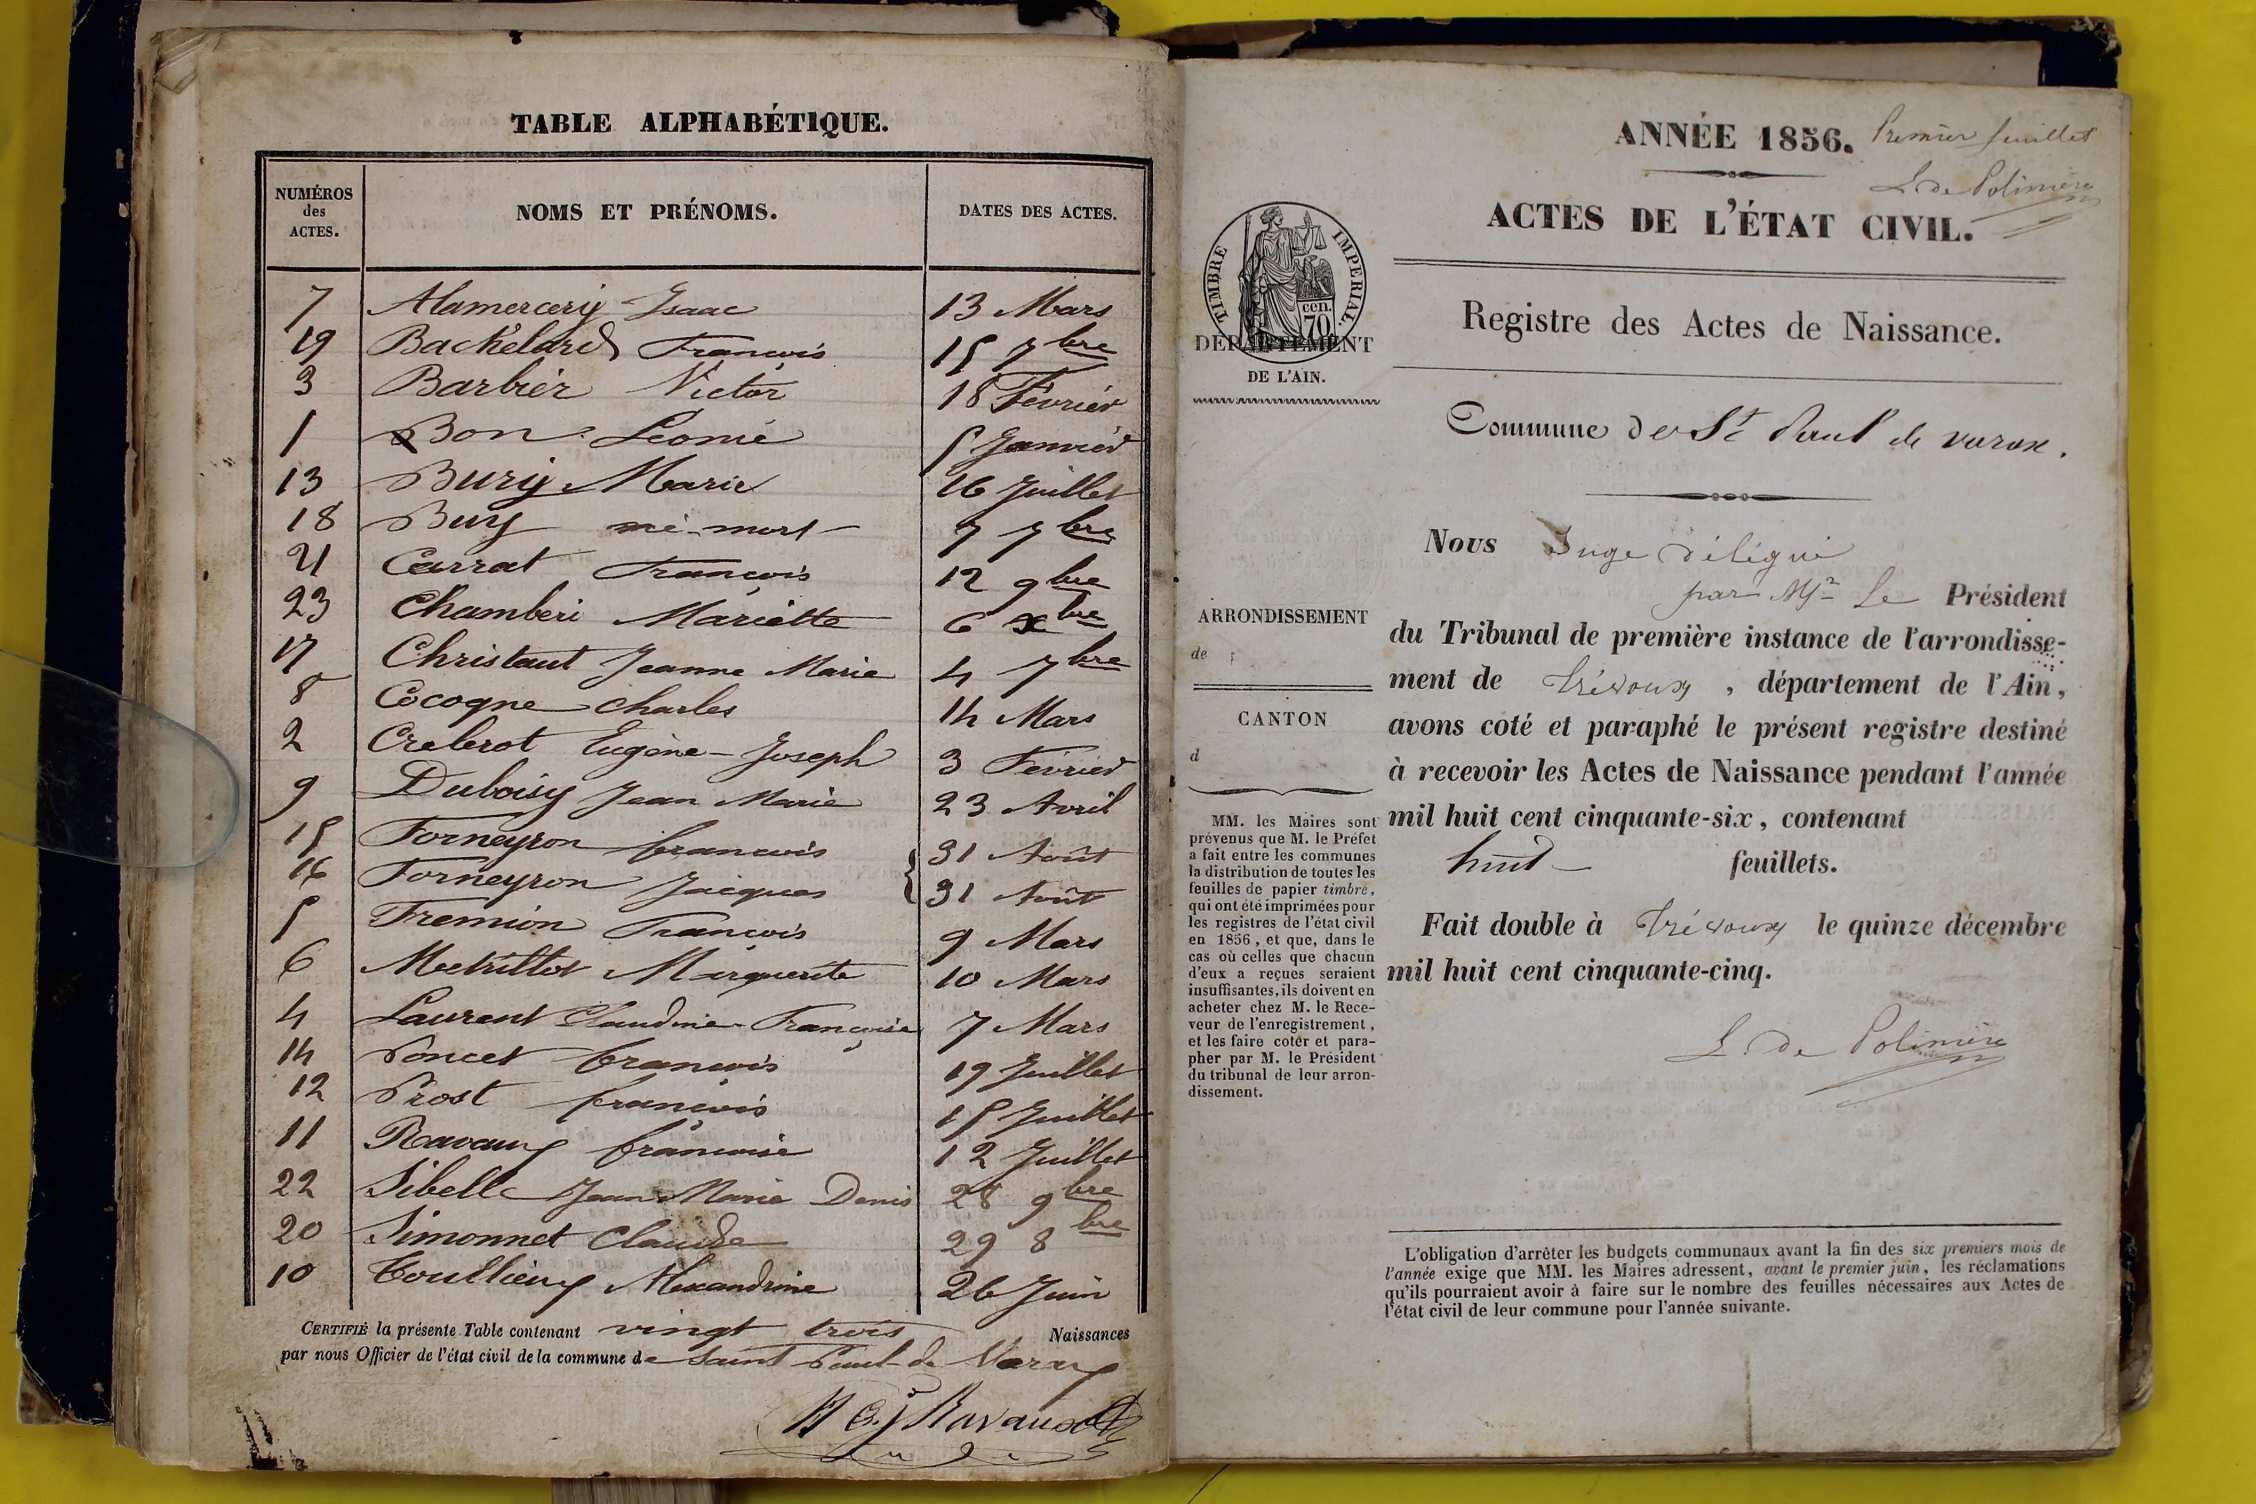 TABLE ALPHABÉTIQUE.
NUMÉROS des ACTES. NOMS ET PRÉNOMS. DATES DES ACTES.
7 Alamercery Isaac 13 Mars
19 Bachelard François 15 7bre
3 Barbier Victor 18 Février
1 Bon Léonie 5 Janvier
13 Bury Marie 16 Juillet
18 Buy né-mort 7 7bre
21 Carrat François 12 9bre
23 Chamberi Mariette 6 xbre
17 Christaut Jeanne Marie 4 7bre
8 Cocogne Charles 14 Mars
2 Crelerot Eugène-Joseph 3 Février
9 Duboisy Jean Marie 23 Avril
15 Forneyron françois 31 Août
16 Forneyron Jacques 31 Août
5 Fremion François 9 Mars
6 Marguerite 10 Mars
4 Laurent Claudine-Françoise 7 Mars
14 Poncet françois 19 Juillet
12 Prost françois 15 Juillet
11 Ravaux françoise 12 Juillet
22 Sibelle Jean Marie Denis 28 9bre
20 Simonnet Claude 29 8bre
10 Alexandrine 26 Juin
CERTIFIÉ la présente Table contenant vingt trois Naissances
par nous Officier de l'état civil de la commune de Saint Paul-de Varax
Ravaux
ANNÉE 1856. Premier feuillet
L. de Polinière
ACTES DE L'ÉTAT CIVIL.
TIMBRE IMPERIAL.
cen.
70
DÉPARTEMENT
DE L'AIN.
Registre des Actes de Naissance.
Commune de St Paul de varax.
Nous Juge délégué
par Mr Le Président
du Tribunal de première instance de l'arrondisse-
ment de Trévoux, département de l'Ain,
avons coté et paraphé le présent registre destiné
à recevoir les Actes de Naissance pendant l'année
mil huit cent cinquante-six, contenant
huit feuillets.
Fait double à Trévoux le quinze décembre
mil huit cent cinquante-cinq.
L. de Polinière
ARRONDISSEMENT
de
CANTON
d
MM. les Maires sont
prévenus que M. le Préfet
a fait entre les communes
la distribution de toutes les
feuilles de papier timbré,
qui ont été imprimées pour
les registres de l'état civil
en 1856, et que, dans le
cas où celles que chacun
d'eux a reçues seraient
insuffisantes, ils doivent en
acheter chez M. le Rece-
veur de l'enregistrement,
et les faire coter et para-
pher par M. le Président
du tribunal de leur arron-
dissement.
L'obligation d'arrêter les budgets communaux avant la fin des six premiers mois de
l'année exige que MM. les Maires adressent, avant le premier juin, les réclamations
qu'ils pourraient avoir à faire sur le nombre des feuilles nécessaires aux Actes de
l'état civil de leur commune pour l'année suivante.